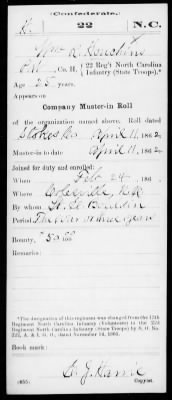 (Confederate.)
H 22 N.C.
Wm R. Hawkins
Pvt, Co. H, { 22 Reg't North Carolina
Infantry (State Troops).*
Age 25 years.
Appears on
Company Muster-in Roll
of the organization named above. Roll dated
Stokes Co. April 11, 1862
Muster-in to date April 11, 1862
Joined for duty and enrolled:
When Feb 24, 186
Where
By whom
Period The war or three years
Bounty, $50 00/100
Remarks:
*The designation of this regiment was changed from the 12th
Regiment North Carolina Infantry (Volunteers) to the 22d
Regiment North Carolina Infantry (State Troops) by S. O. No.
222, A. & I. G. O., dated November 14, 1861.
Book mark:
Copyist.